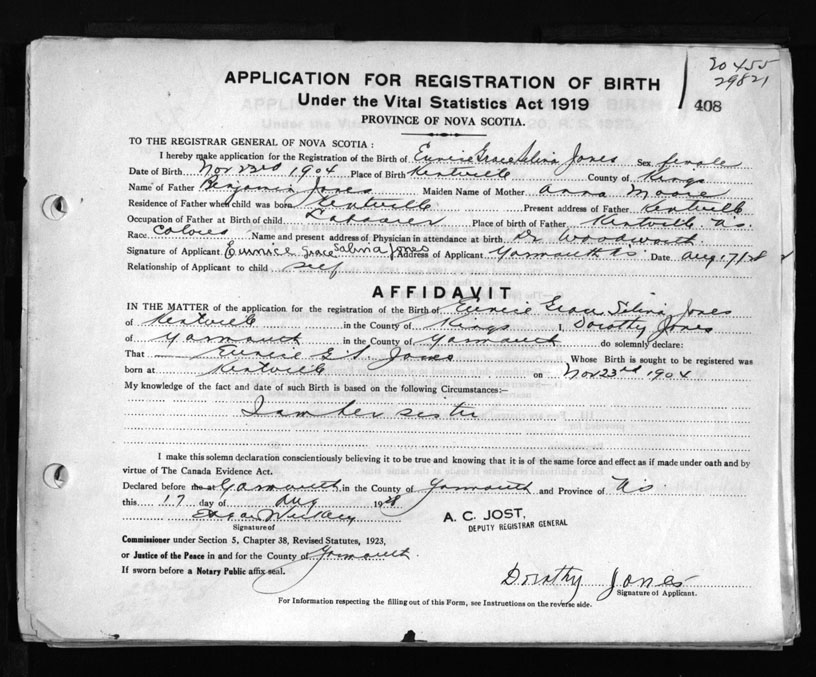 20455
29821
APPLICATION FOR REGISTRATION OF BIRTH
Under the Vital Statistics Act 1919
408
PROVINCE OF NOVA SCOTIA.
TO THE REGISTRAR GENERAL OF NOVA SCOTIA :
I hereby make application for the Registration of the Birth of Eunice Grace Selina Jones Sex female
Date of Birth Nov 23rd 1904 Place of Birth Kentville County of Kings
Name of Father Benjamin Jones Maiden Name of Mother Anna Moore
Residence of Father when child was born Kentville Present address of Father Kentville
Occupation of Father at Birth of child Labourer Place of birth of Father Kentville N.S.
Race Name and present address of Physician in attendance at birth Dr Woodworth
Signature of Applicant Eunnice Grace Salina Jones Address of Applicant Yarmouth N.S. Date Aug. 17/28
Relationship of Applicant to child self
AFFIDAVIT
IN THE MATTER of the application for the registration of the Birth of Eunice Grace Selina Jones
of Kentville in the County of Kings I, Dorothy Jones
of Yarmouth in the County of Yarmouth do solemnly declare:
That Eunice G S Jones Whose Birth is sought to be registered was
born at Kentville on Nov 23rd 1904
My knowledge of the fact and date of such Birth is based on the following Circumstances:–
I am her sister
I make this solemn declaration conscientiously believing it to be true and knowing that it is of the same force and effect as if made under oath and by
virtue of The Canada Evidence Act.
Declared before me at Yarmouth in the County of Yarmouth and Province of N.S.
this 17 day of Aug 1928
A. C. JOST,
DEPUTY REGISTRAR GENERAL
Signature of
Commissioner under Section 5, Chapter 38, Revised Statutes, 1923,
or Justice of the Peace in and for the County of Yarmouth.
If sworn before a Notary Public affix seal.
Dorothy Jones
Signature of Applicant.
For Information respecting the filling out of this Form, see Instructions on the reverse side.